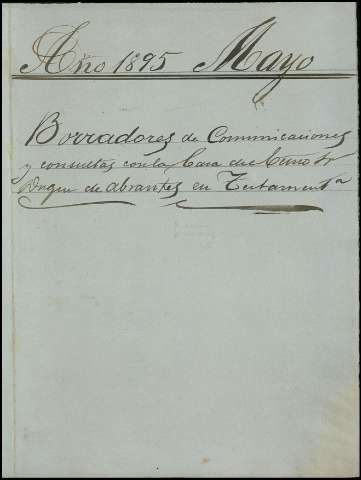 Año 1895 Mayo
Borradores de Communicaciones
y consultas con la Casa del Exmo Sr
Duque de Abrantes en Testamentª